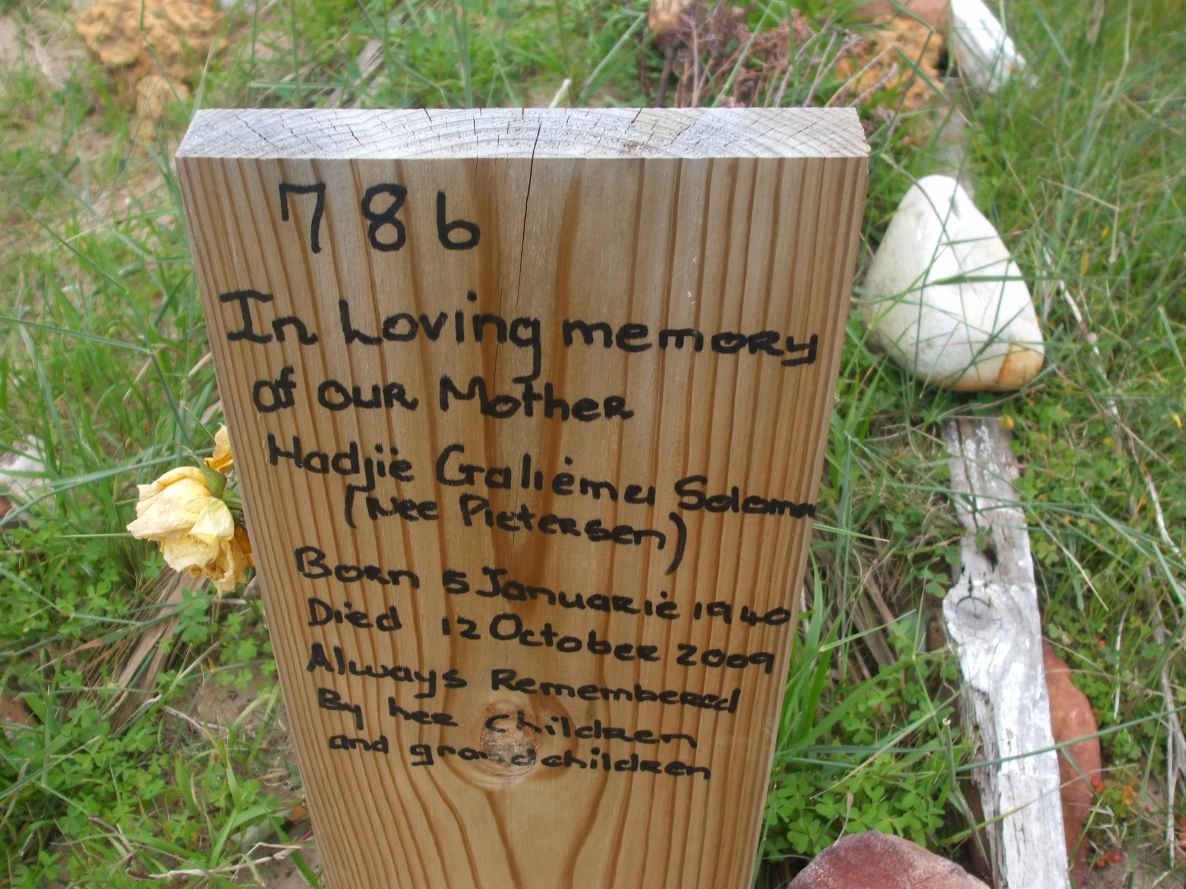 786
In Loving memory
of our Mother
Hadjië Galiema Soloman
(Nee Pietersen)
Born 5 Januarie 1940
Died 12 October 2009
Always Remembered
By her children
and grandchildren